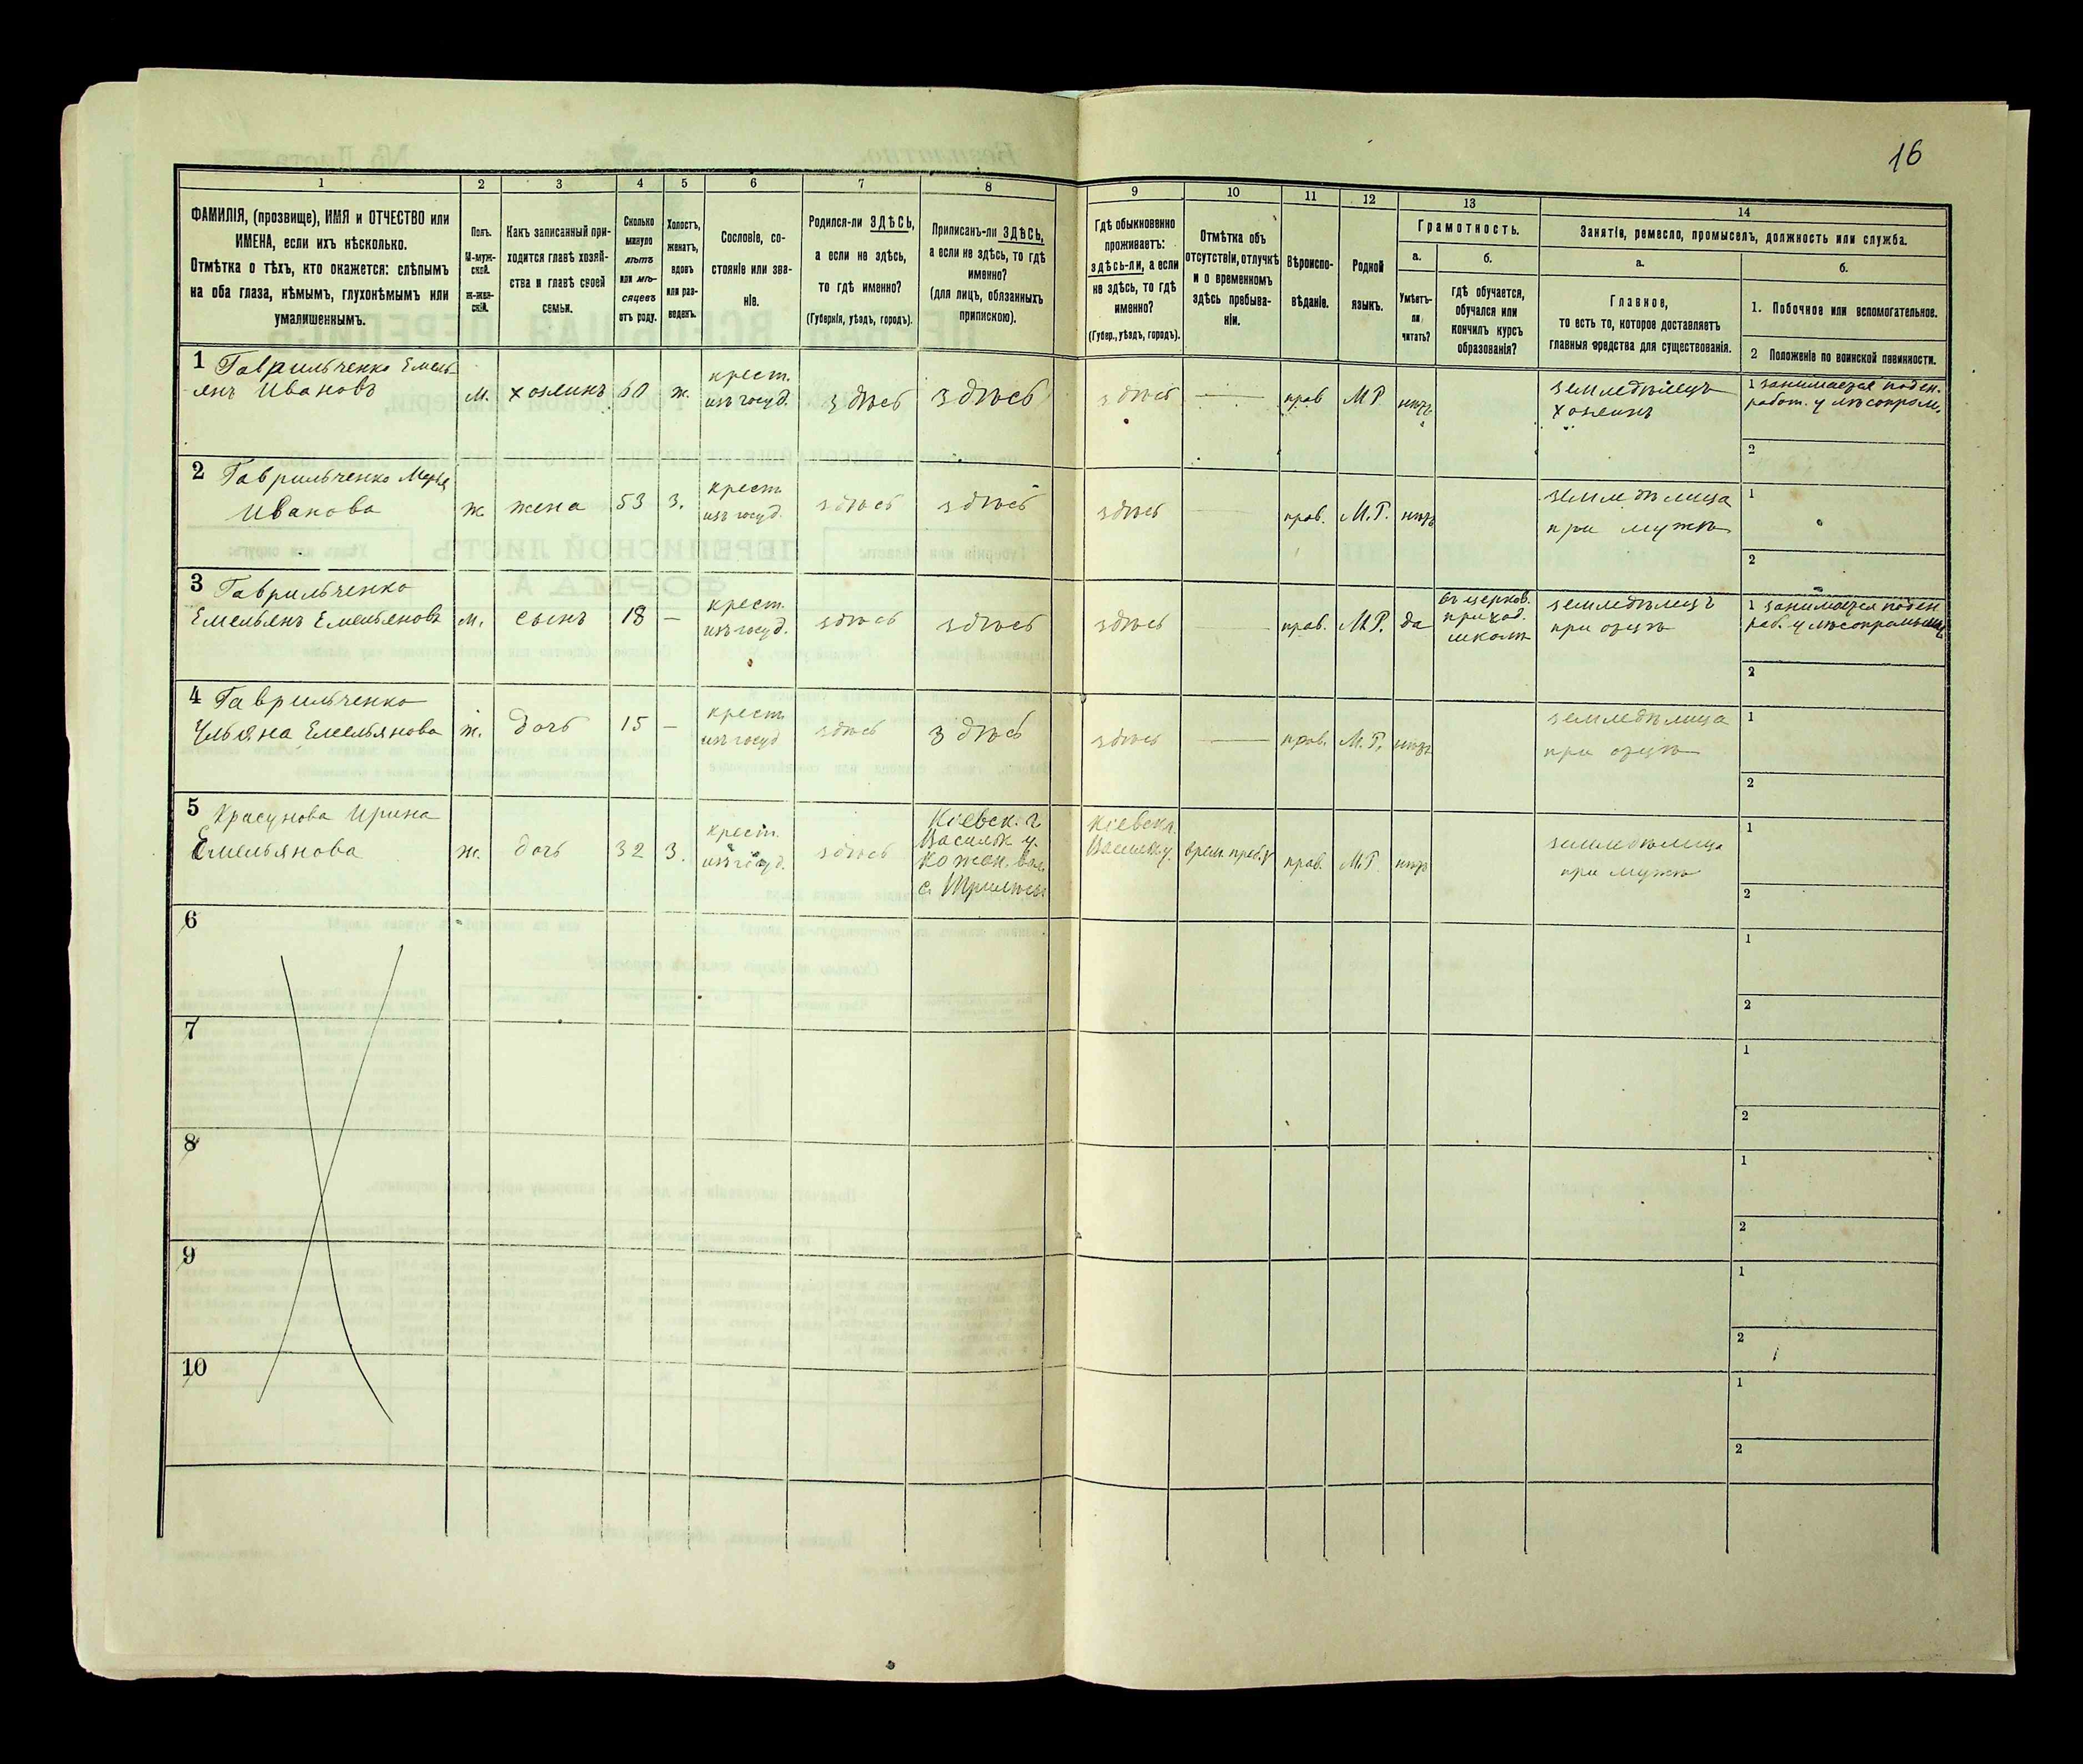 16
1
2
3
4
5
6
7
8
9
10
11
12
13
14
ФАМИЛІЯ, (прозвище), ИМЯ и ОТЧЕСТВО или
ИМЕНА, если ихъ нѣсколько.
Отмѣтка о тѣхъ, кто окажется: слѣпымъ
на оба глаза, нѣмымъ, глухонѣмымъ или
умалишеннымъ.
Полъ.
М-муж-
ской.
Ж-жен-
скій.
Какъ записанный при-
ходится главѣ хозяй-
ства и главѣ своей
семьи.
Сколько
минуло
лѣтъ
или мѣ-
сяцевъ
отъ роду.
Холостъ,
женатъ,
вдовъ
или раз-
веденъ.
Сословіе, со-
стояніе или зва-
ніе.
Родился-ли ЗДѢСЬ,
а если не здѣсь,
то гдѣ именно?
(Губернія, уѣздъ, городъ).
Приписанъ-ли ЗДѢСЬ,
а если не здѣсь, то гдѣ
именно?
(для лицъ, обязанныхъ
припискою).
Гдѣ обыкновенно
проживаетъ:
здѣсь-ли, а если
не здѣсь, то гдѣ
именно?
(Губер., уѣздъ, городъ).
Отмѣтка объ
отсутствіи, отлучкѣ
и о временномъ
здѣсь пребыва-
ніи.
Вѣроиспо-
вѣданіе.
Родной
языкъ.
Грамотность.
а.
Умѣетъ-
ли
читать?
б.
гдѣ обучается,
обучался или
кончилъ курсъ
образованія?
Занятіе, ремесло, промыселъ, должность или служба.
а.
Главное,
то есть то, которое доставляетъ
главныя средства для существованія.
б.
1. Побочное или вспомогательное.
2 Положеніе по воинской повинности.
1 Гаврильченко Емель
янъ Ивановъ
м. хозяинъ 60 ж.
крест.
изъ госуд.
здѣсь здѣсь здѣсь — прав М Р нѣтъ
земледѣлецъ
хозяинъ
1 занимается поден.
работ. у лѣсопром.
2
2 Гаврильченко Марья
Иванова
ж. жена 53 з.
крест.
изъ госуд.
здѣсь здѣсь здѣсь — прав. М.Р. нѣтъ
земледѣлица
при мужѣ
1
2
3 Гаврильченко
Емельянъ Емельяновъ
м. сынъ 18 —
крест.
изъ госуд.
здѣсь здѣсь здѣсь — прав. М.Р. да
въ церков.
приход.
школѣ
земледѣлецъ
при отцѣ
1 занимается поден
раб. у лѣсопромышл
2
4 Гаврильченко
Ульяна Емельянова
ж. дочь 15 —
крест.
изъ госуд
здѣсь здѣсь здѣсь — прав. М.Р. нѣтъ
земледѣлица
при отцѣ
1
2
5 Красунова Ирина
Емельянова
ж. дочь 32 з.
крест.
изъ госуд.
здѣсь
Кіевск. г.
Васильк у.
Кожан. вол
с.
Кіевск г.
Васильк у.
врем. преб. прав. М.Р. нѣтъ
земледѣлица
при мужѣ
1
2
6
1
2
7
1
2
8
1
2
9
1
2
10
1
2